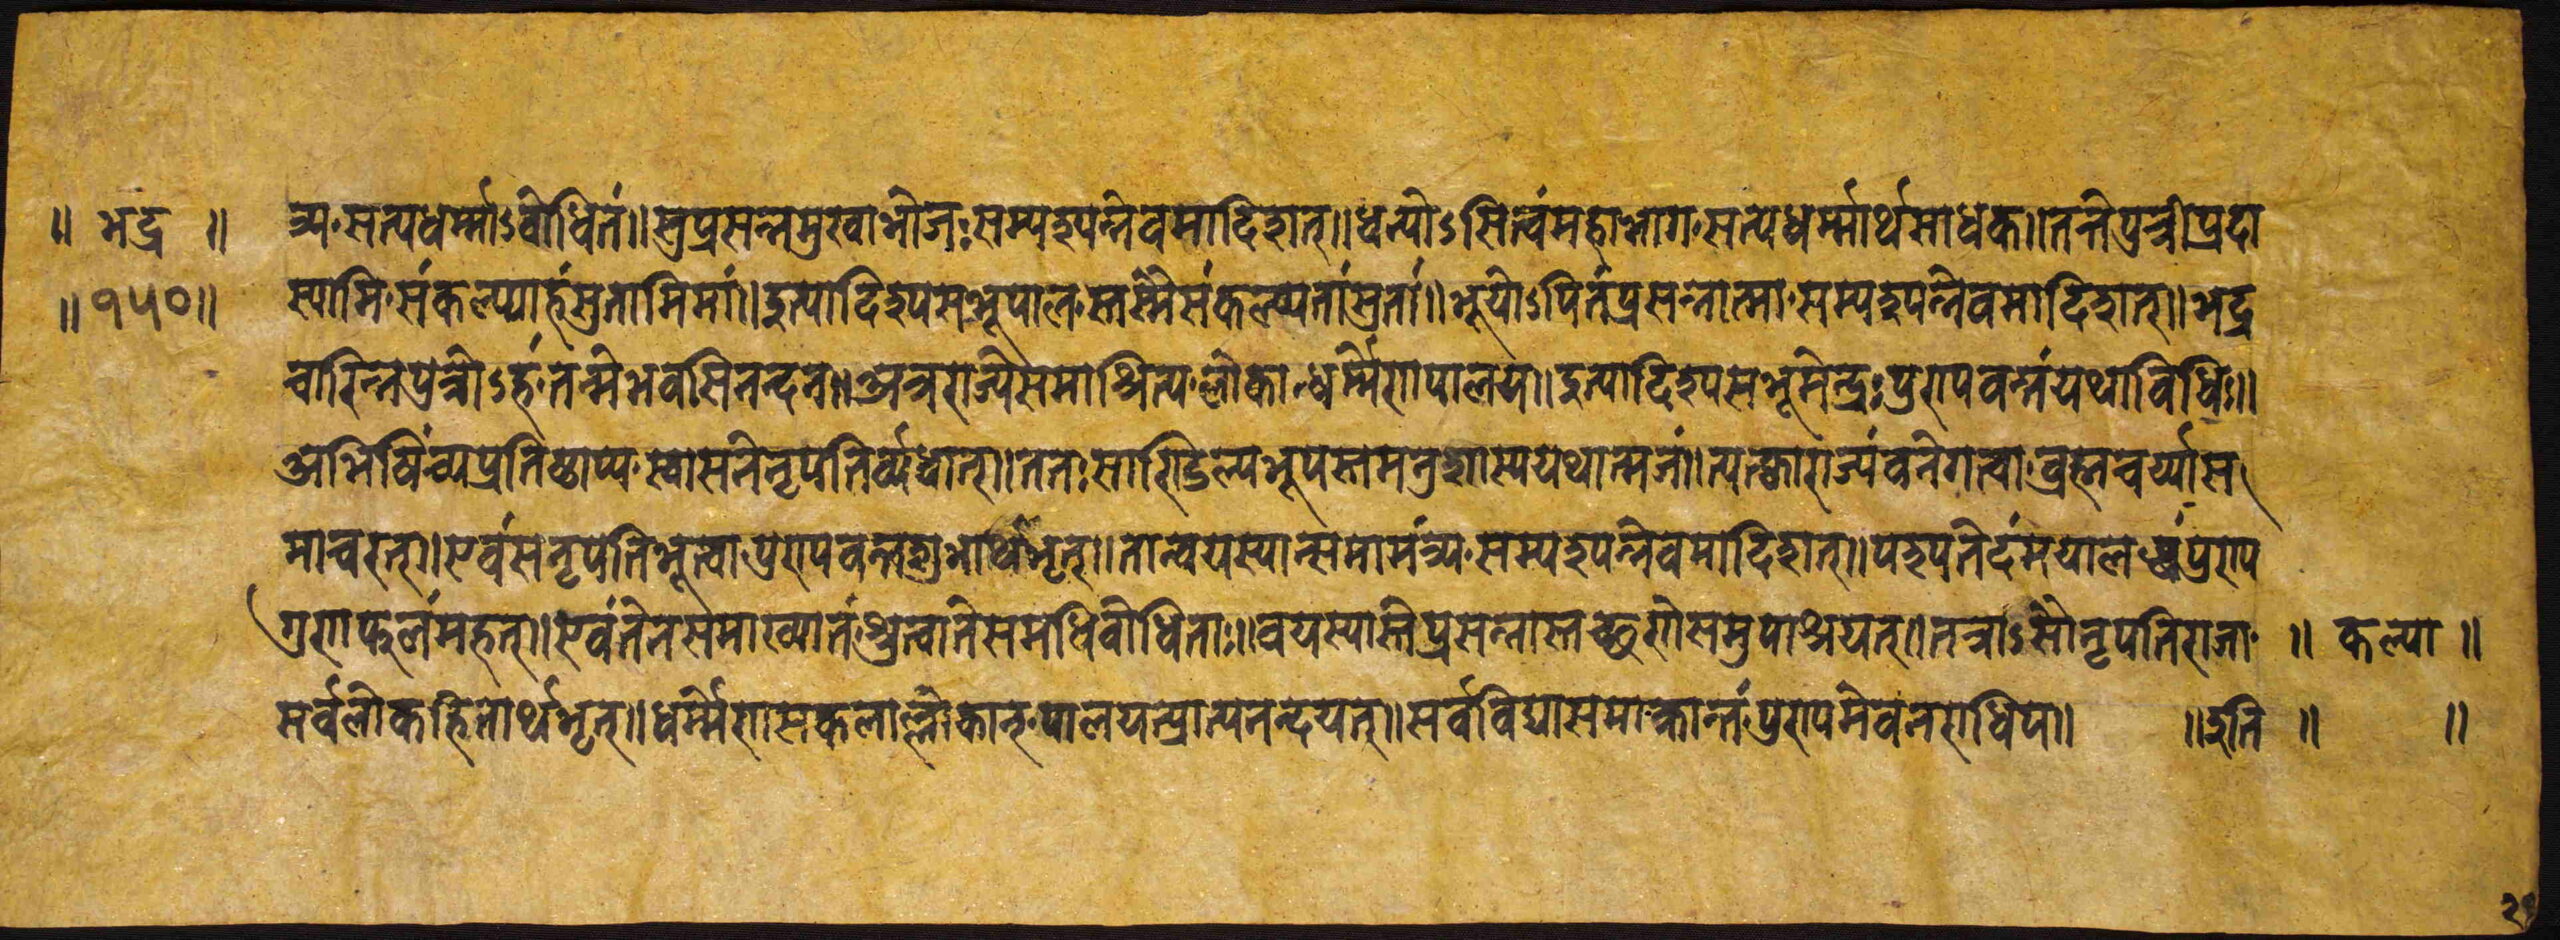 ॥ भद्र ॥
॥१५०॥
त्र्य सत्यधर्म्माऽवोधितं॥सुप्रसन्नमुखाम्भोजः सम्पश्यन्नेवमादिशत्॥धन्योऽसित्वंमहाभाग सत्यधर्म्मार्थसाधक॥तत्तेपुत्रींप्रदा
स्यामि संकल्प्याहंसुतामिमां॥इत्यादिश्यसभूपाल स्तस्मैसंकल्प्यतांसुतां॥भूयोऽपितंप्रसन्नात्मा सम्पश्यन्नेवमादिशत्॥भद्र
चारिन्नपुत्रोऽहं तन्मेभवसिनन्दन॥अत्रराज्येसमाश्रित्य लोकान्धर्म्मेणपालय॥इत्यादिश्यसभूमेन्द्रः पुण्यवन्तंयथाविधिः॥
अभिषिंच्यप्रतिष्ठाप्य स्वासनेनृपतिर्व्यधात्॥ततः भूपस्तमनुशास्ययथात्मजं॥त्यक्त्वाराज्यंवनेगत्वा व्रह्मचर्य्यांस
माचरत्॥एवंसनृपतिर्भूत्वा पुण्यवन्तशुभार्थभृत्॥तान्वयस्यान्समामंत्र्य सम्पश्यन्नेवमादिशत्॥पश्यतेदंमयालब्धं पुण्य
गुणफलंमहत्॥एवंतेनसमाख्यातं श्रुत्वातेसमधिवोधिताः॥वयस्यास्तेप्रसन्नास्तच्छरणेसमुपाश्रयत्॥तत्राऽसौनृपतिराजा ॥ कल्पा ॥
सर्वलोकहितार्थभृत्॥धर्म्मेणसकलाल्लोकान् पालयन्प्राभ्यनन्दयत्॥सर्वविद्यासमाक्रान्तं पुण्यमेवनराधिपे॥ ॥इति ॥ ॥